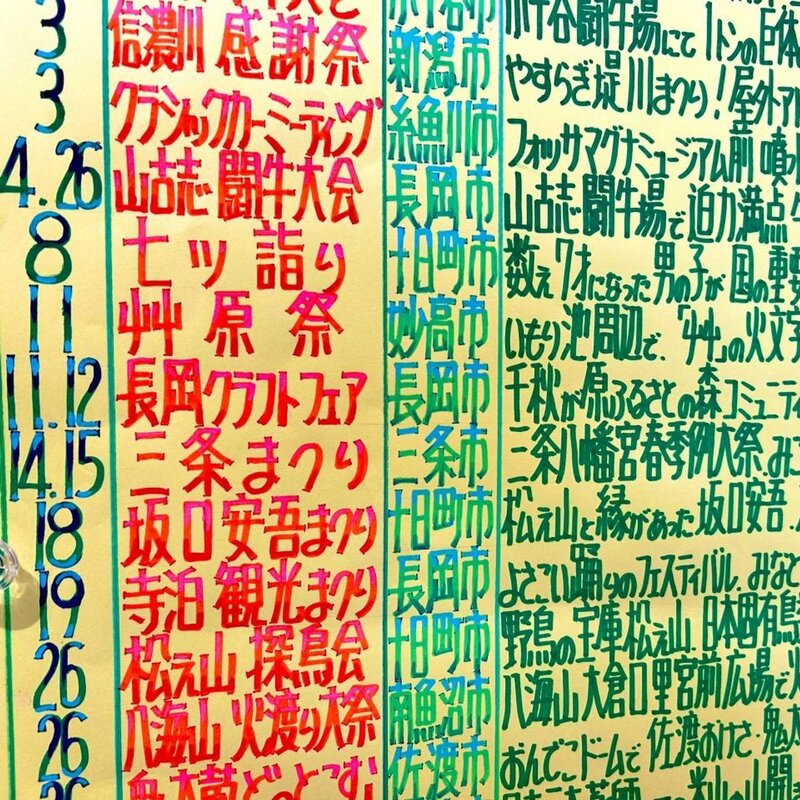 3 信濃川 感謝祭 新潟市 やすらぎ堤 川まつり!屋外
3 クラシックカーミーティング 糸魚川市 フォッサマグナミュージアム前 噴
4.26 山古志 闘牛大会 長岡市 山古志闘牛場で 迫力満点
8 七ツ 詣り 十日町市 数え7才になった 男の子が 国の重要
11 艸原祭 妙高市 いもり池周辺で、「艸」の火文字
11.12 長岡クラフトフェア 長岡市 千秋が原ふるさとの森コミュニティ
14.15 三条まつり 三条市 三条八幡宮春季例大祭、みこ
18 坂口安吾まつり 十日町市 松え山と縁があった 坂口安吾
19 寺泊 観光まつり 長岡市 よさこい踊りのフェスティバル、みなと
26 松え山 探鳥会 十日町市 野鳥の宝庫 松え山、日本
26 八海山 火渡り大祭 南魚沼市 八海山大倉口里宮前広場で
26 佐渡市 おんでこドームで 佐渡おけさ、鬼太